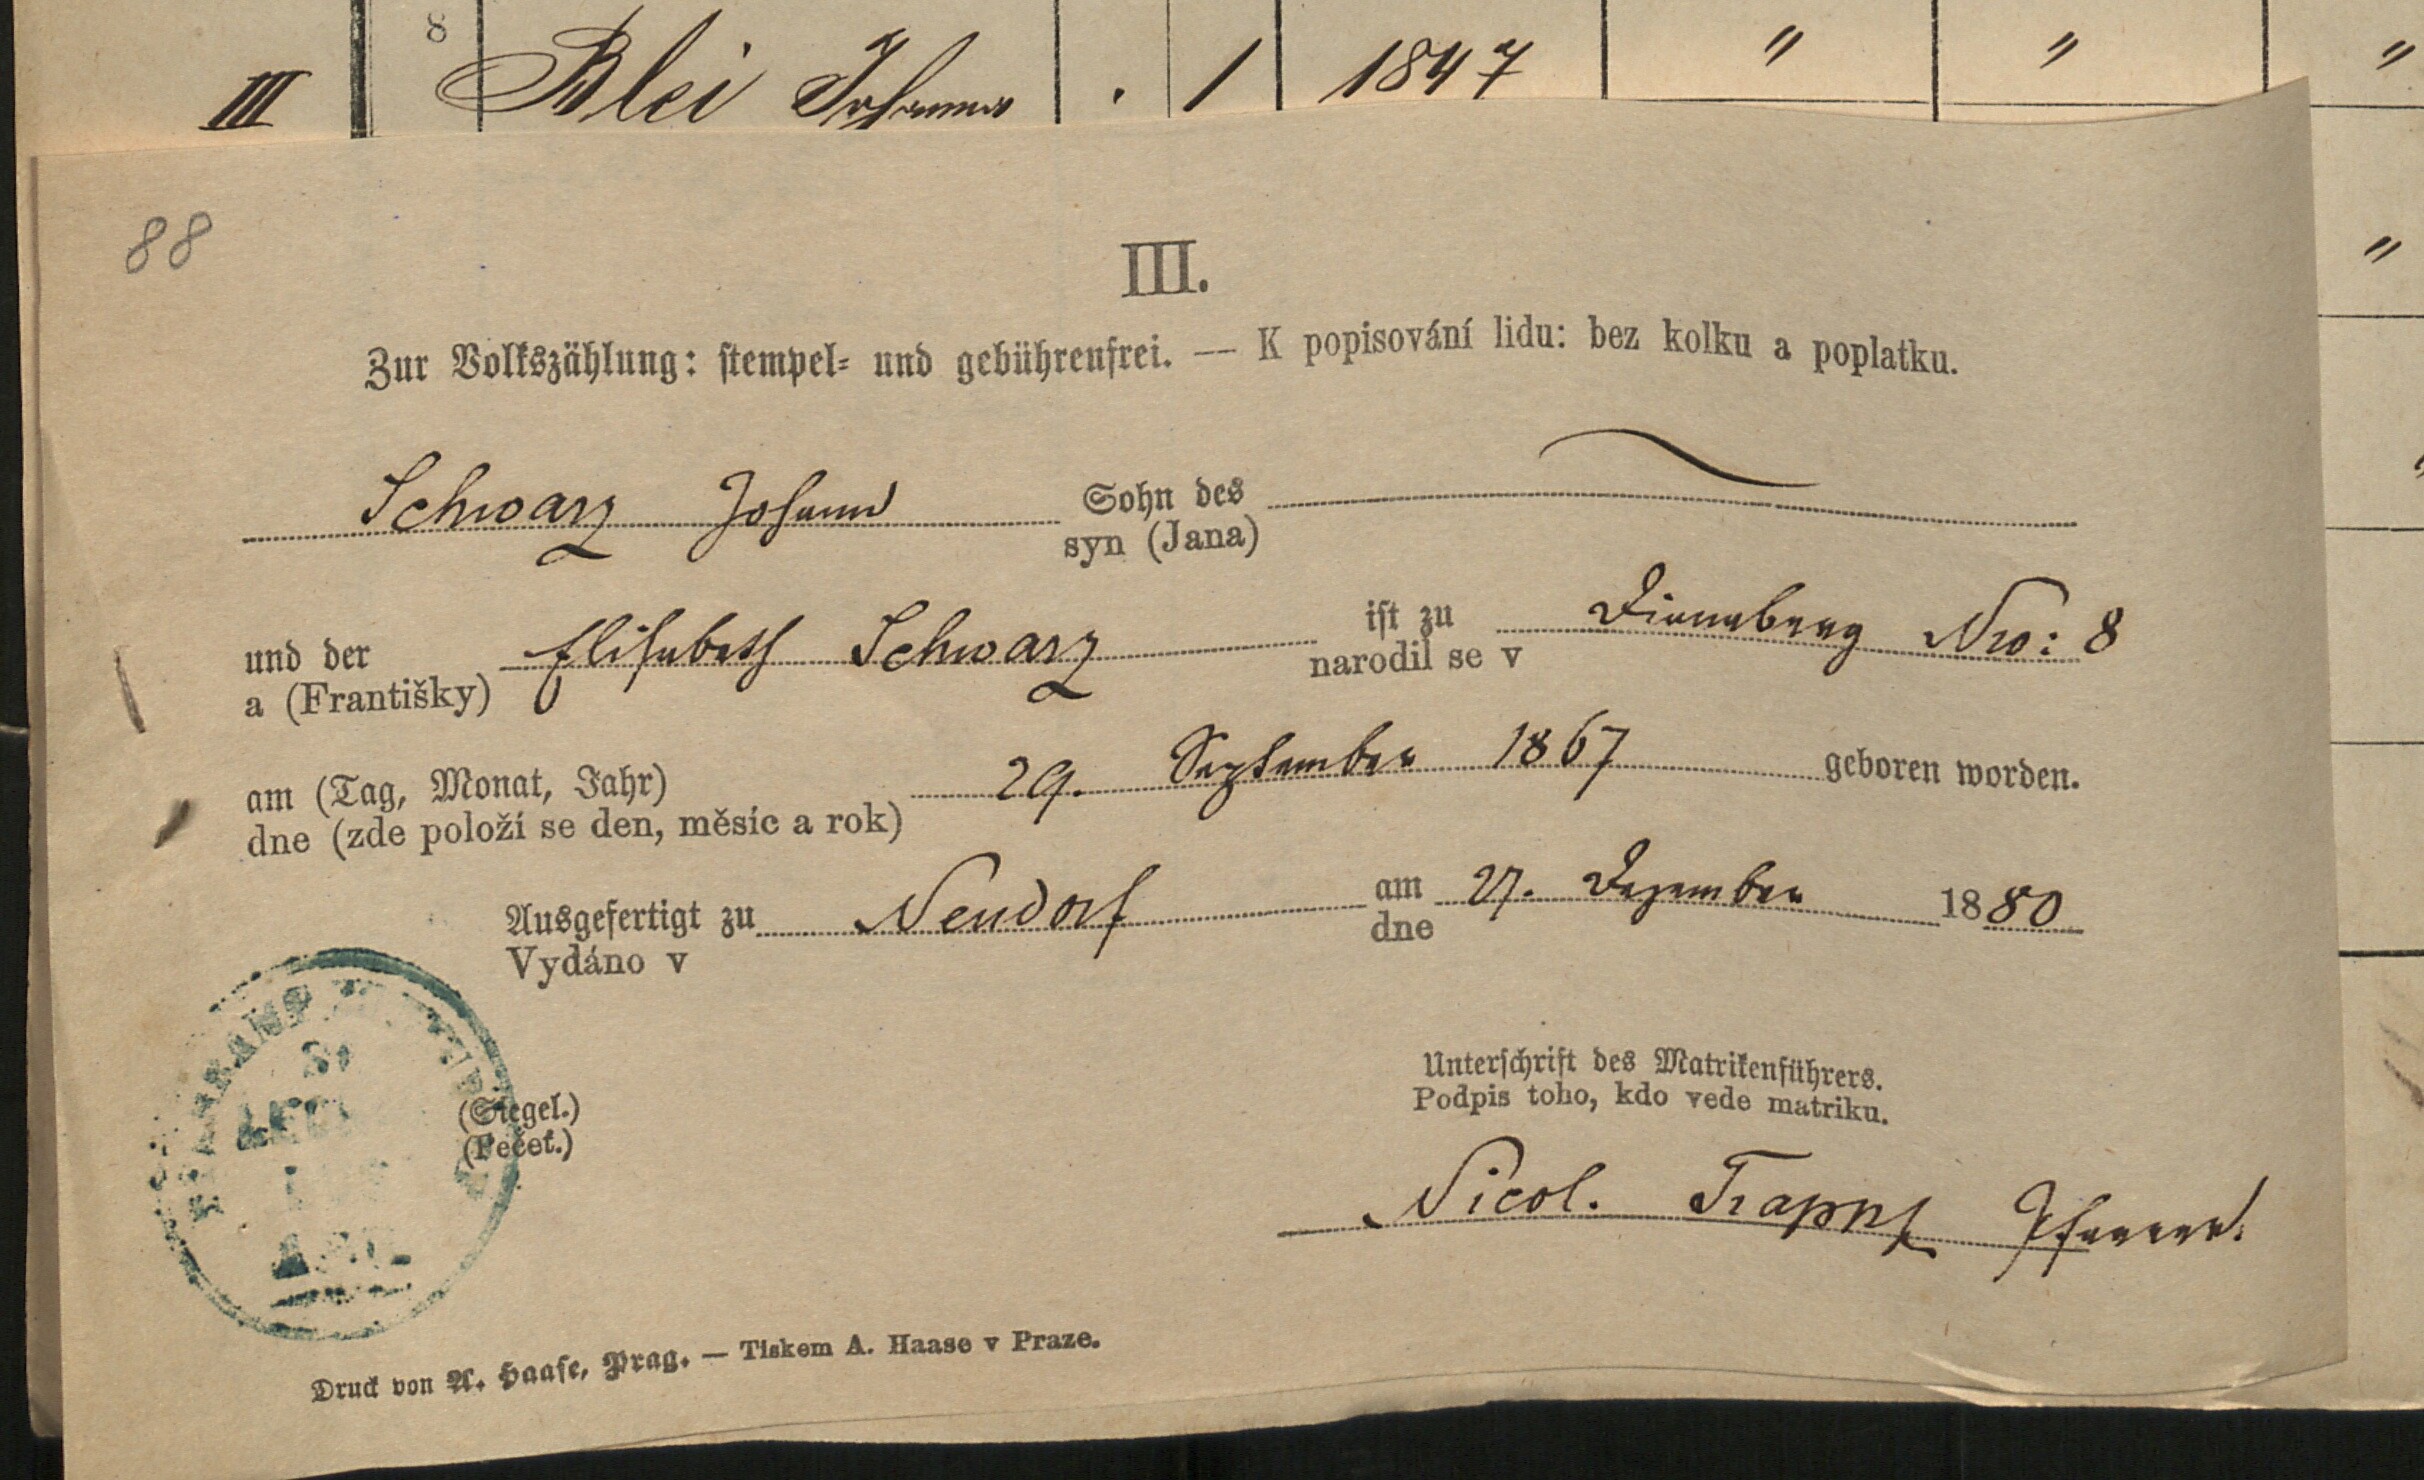 8
III Blei Johann . 1 1847 " " "
"
88
III.
Zur Volkszählung: stempel- und gebührenfrei. — K popisování lidu: bez kolku a poplatku.
Schwarz Johann Sohn des
syn (Jana)
und der Elisabeth Schwarz ist zu Dianaberg Nro: 8
a (Františky) narodil se v
am (Tag, Monat, Jahr) 29. September 1867 geboren worden.
dne (zde položí se den, měsíc a rok)
Ausgefertigt zu Neudorf am 27. Dezember 1880
Vydáno v dne
Unterschrift des Matrikenführers.
Podpis toho, kdo vede matriku.
(Siegel.)
(Pečet.)
Nicol. Trappl Pfarrer.
Druck von A. Haase, Prag. — Tiskem A. Haase v Praze.